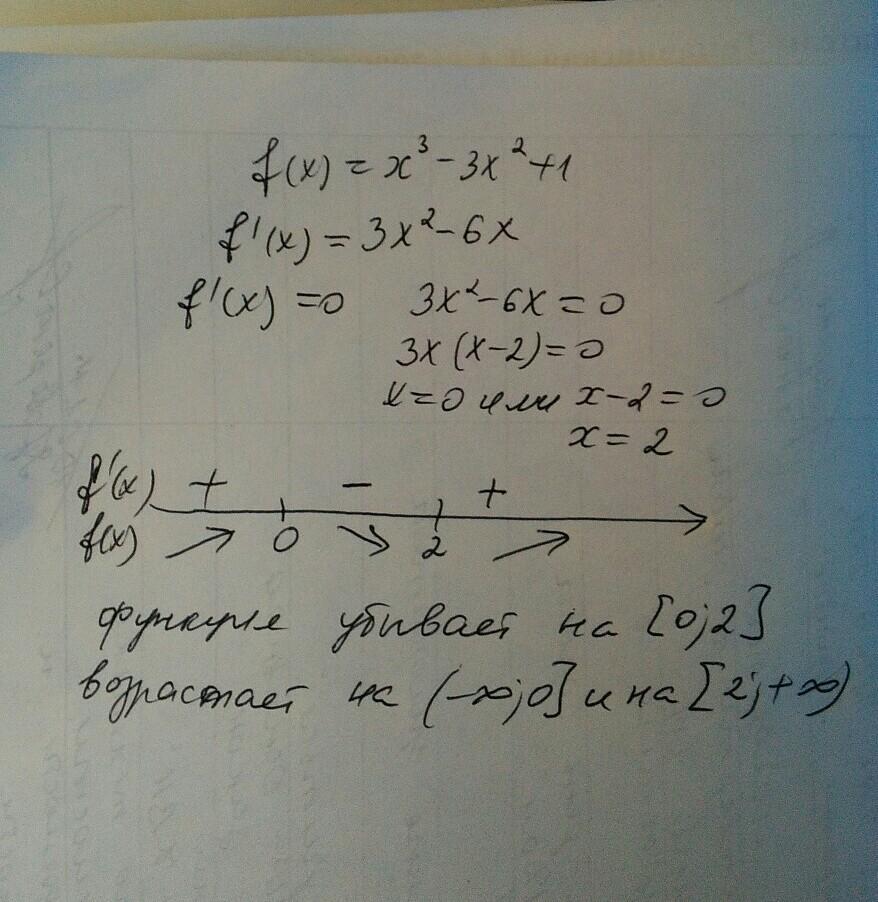 f(x) = x³ - 3x² + 1
f'(x) = 3x² - 6x
f'(x) = 0 3x² - 6x = 0
3x (x - 2) = 0
x = 0 или x - 2 = 0
x = 2
f'(x) + - +
f(x) ↗ 0 ↘ 2 ↗
функция убывает на [0; 2]
возрастает на (-∞; 0] и на [2; +∞)